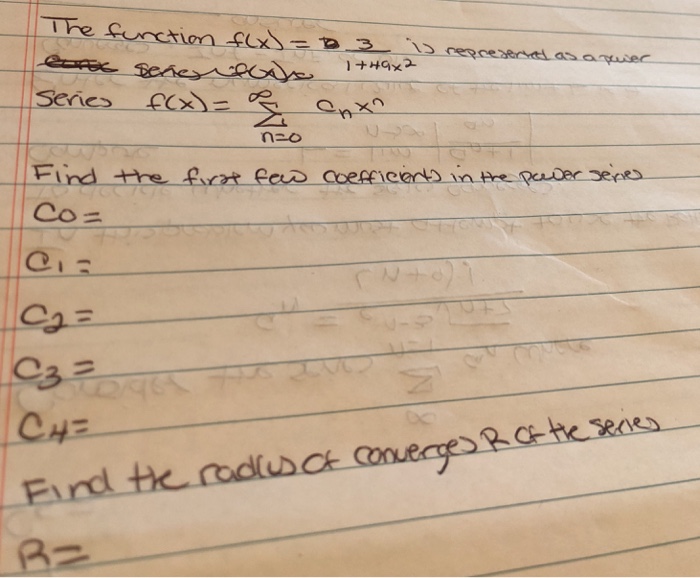 The function f(x) = 3/(1+49x²) is represented as a power
series f(x) =
Series f(x) = ∞ Σ n=0 Cnxⁿ
Find the first few coefficients in the power series
C0 =
C1 =
C2 =
C3 =
C4 =
Find the radius of converges R of the series
R =